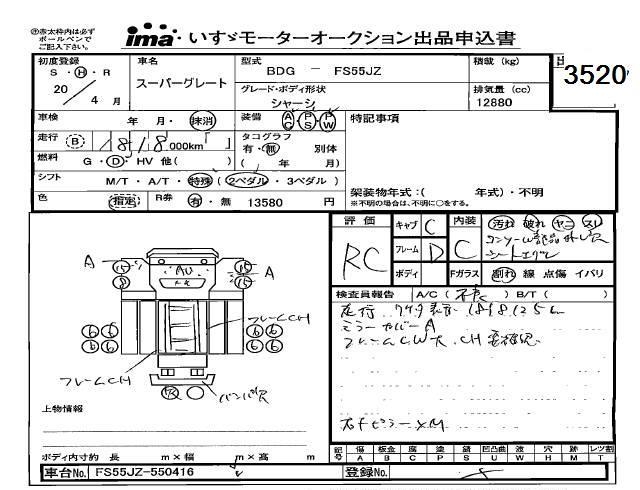 ㋐赤太枠内は必ず
ボールペンで
ご記入下さい。
ima・いすゞモーターオークション出品申込書
初度登録
S・H・R
20／4月
車名
スーパーグレート
型式
BDG － FS55JZ
グレード・ボディ形状
シャーシ
積載 (kg)
排気量 (cc)
12880
3520
車検 年 月・抹消
装備 AC PS PW
特記事項
走行 B
000km
タコグラフ
有・無 別体
( 年 月)
燃料 G・D・HV 他( )
シフト M/T・A/T・特殊(2ペダル・3ペダル)
架装物年式:( 年式)・不明
※不明の場合は、不明に○をする。
色 指定 R券 有・無 13580 円
評価 RC
キャブ C
フレーム D
ボディ
内装 C
Fガラス
汚れ 破れ ヤニ スレ
割れ 線 点傷 イバリ
検査員報告 A/C ( ) B/T ( )
ミラーカバーA
A
A
15
8
AU
フレームCH
6 6
6 6
フレームCH
バンパ穴
上物情報
ボディ内寸約 長 m×幅 m×高 m
記号 傷A 板金B 腐C 塗P 錆S 凹凸曲U 波W 穴H 跡M レツ割T
車台No. FS55JZ-550416
登録No.